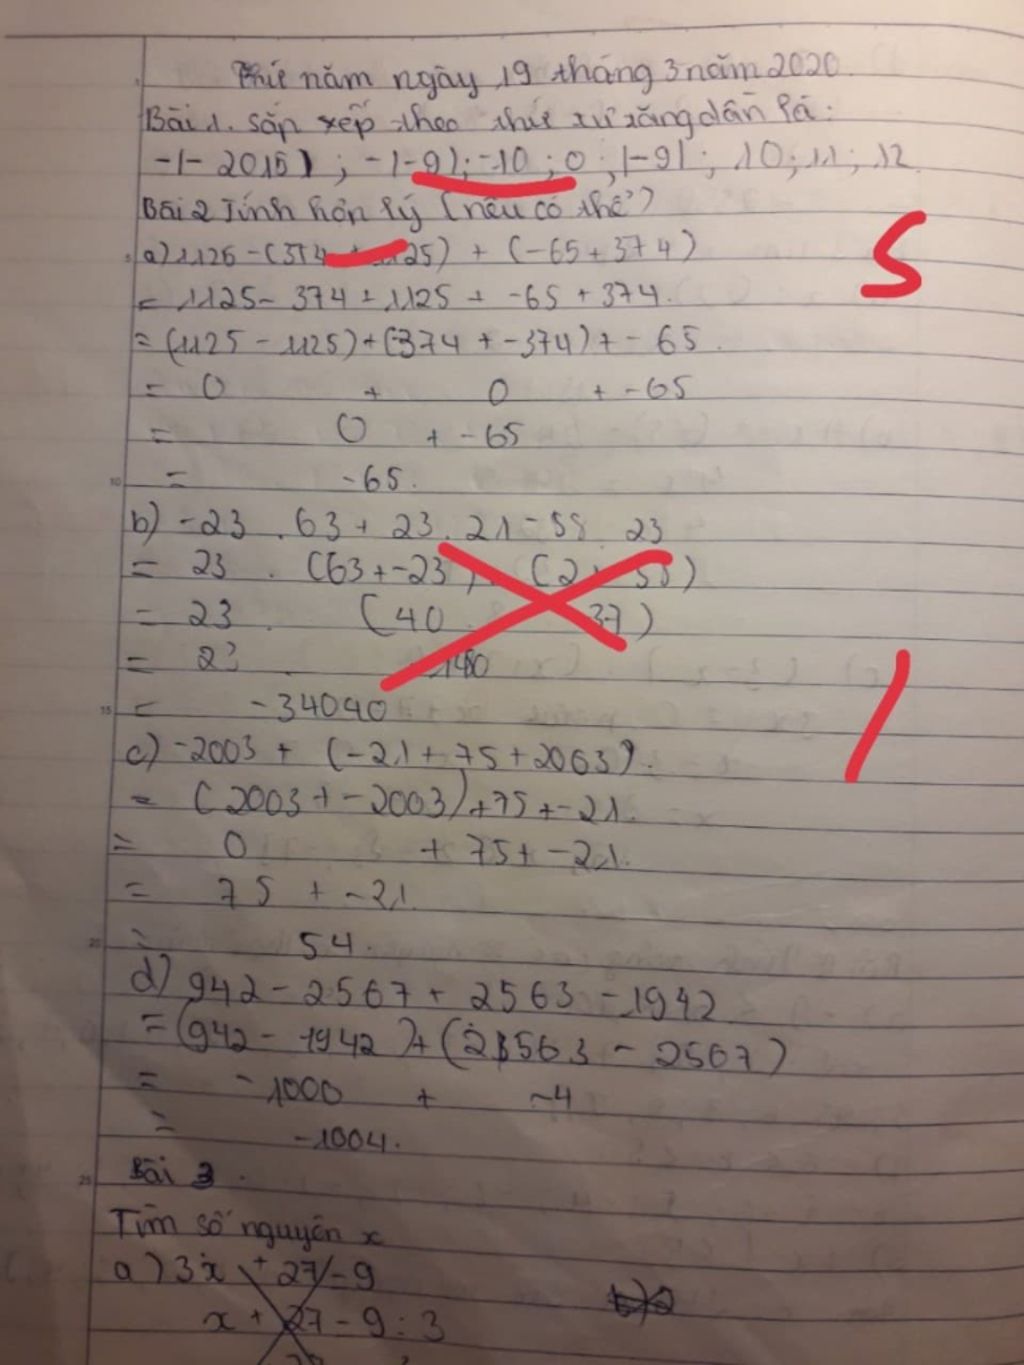 Thứ năm ngày 19 tháng 3 năm 2020
Bài 1. Sắp xếp theo thứ tự tăng dần là:
-|-2015|; -|-9|; -10; 0; |-9|; 10; 11; 12
Bài 2 Tính hợp lý (nếu có thể)
a) 1125 - (374 + 1125) + (-65 + 374)
= 1125 - 374 + 1125 + -65 + 374.
= (1125 - 1125) + (-374 + -374) + -65.
= 0 + 0 + -65
= 0 + -65
= -65.
b) -23 . 63 + 23 . 21 - 58 . 23
= 23 . (63 + -23) . (21 58)
= 23 . (40 . 37)
= 23 . 1480
= -34040
c) -2003 + (-21 + 75 + 2003).
= (2003 + -2003) + 75 + -21.
= 0 + 75 + -21.
= 75 + -21
= 54.
d) 942 - 2567 + 2563 - 1942
= (942 - 1942) + (2563 - 2567)
= -1000 + -4
= -1004.
Bài 3.
Tìm số nguyên x
a) 3x + 27 = 9
x + 27 = 9 : 3
S